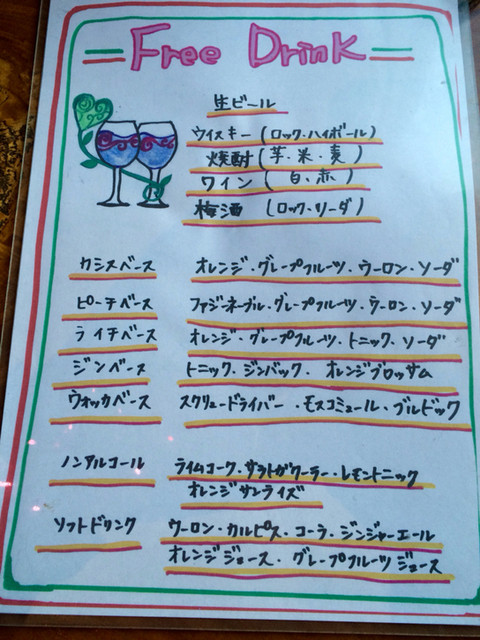 Free Drink
生ビール
ウイスキー (ロック・ハイボール)
焼酎 (芋・米・麦)
ワイン ( 白・赤 )
梅酒 (ロック・ソーダ)
カシスベース オレンジ・グレープフルーツ・ウーロン・ソーダ
ピーチベース ファジーネーブル・グレープフルーツ・ウーロン・ソーダ
ライチベース オレンジ・グレープフルーツ・トニック・ソーダ
ジンベース トニック・ジンバック・オレンジブロッサム
ウォッカベース スクリュードライバー・モスコミュール・ブルドック
ノンアルコール ライムコーク・サラトガクーラー・レモントニック
オレンジサンライズ
ソフトドリンク ウーロン・カルピス・コーラ・ジンジャーエール
オレンジジュース・グレープフルーツジュース